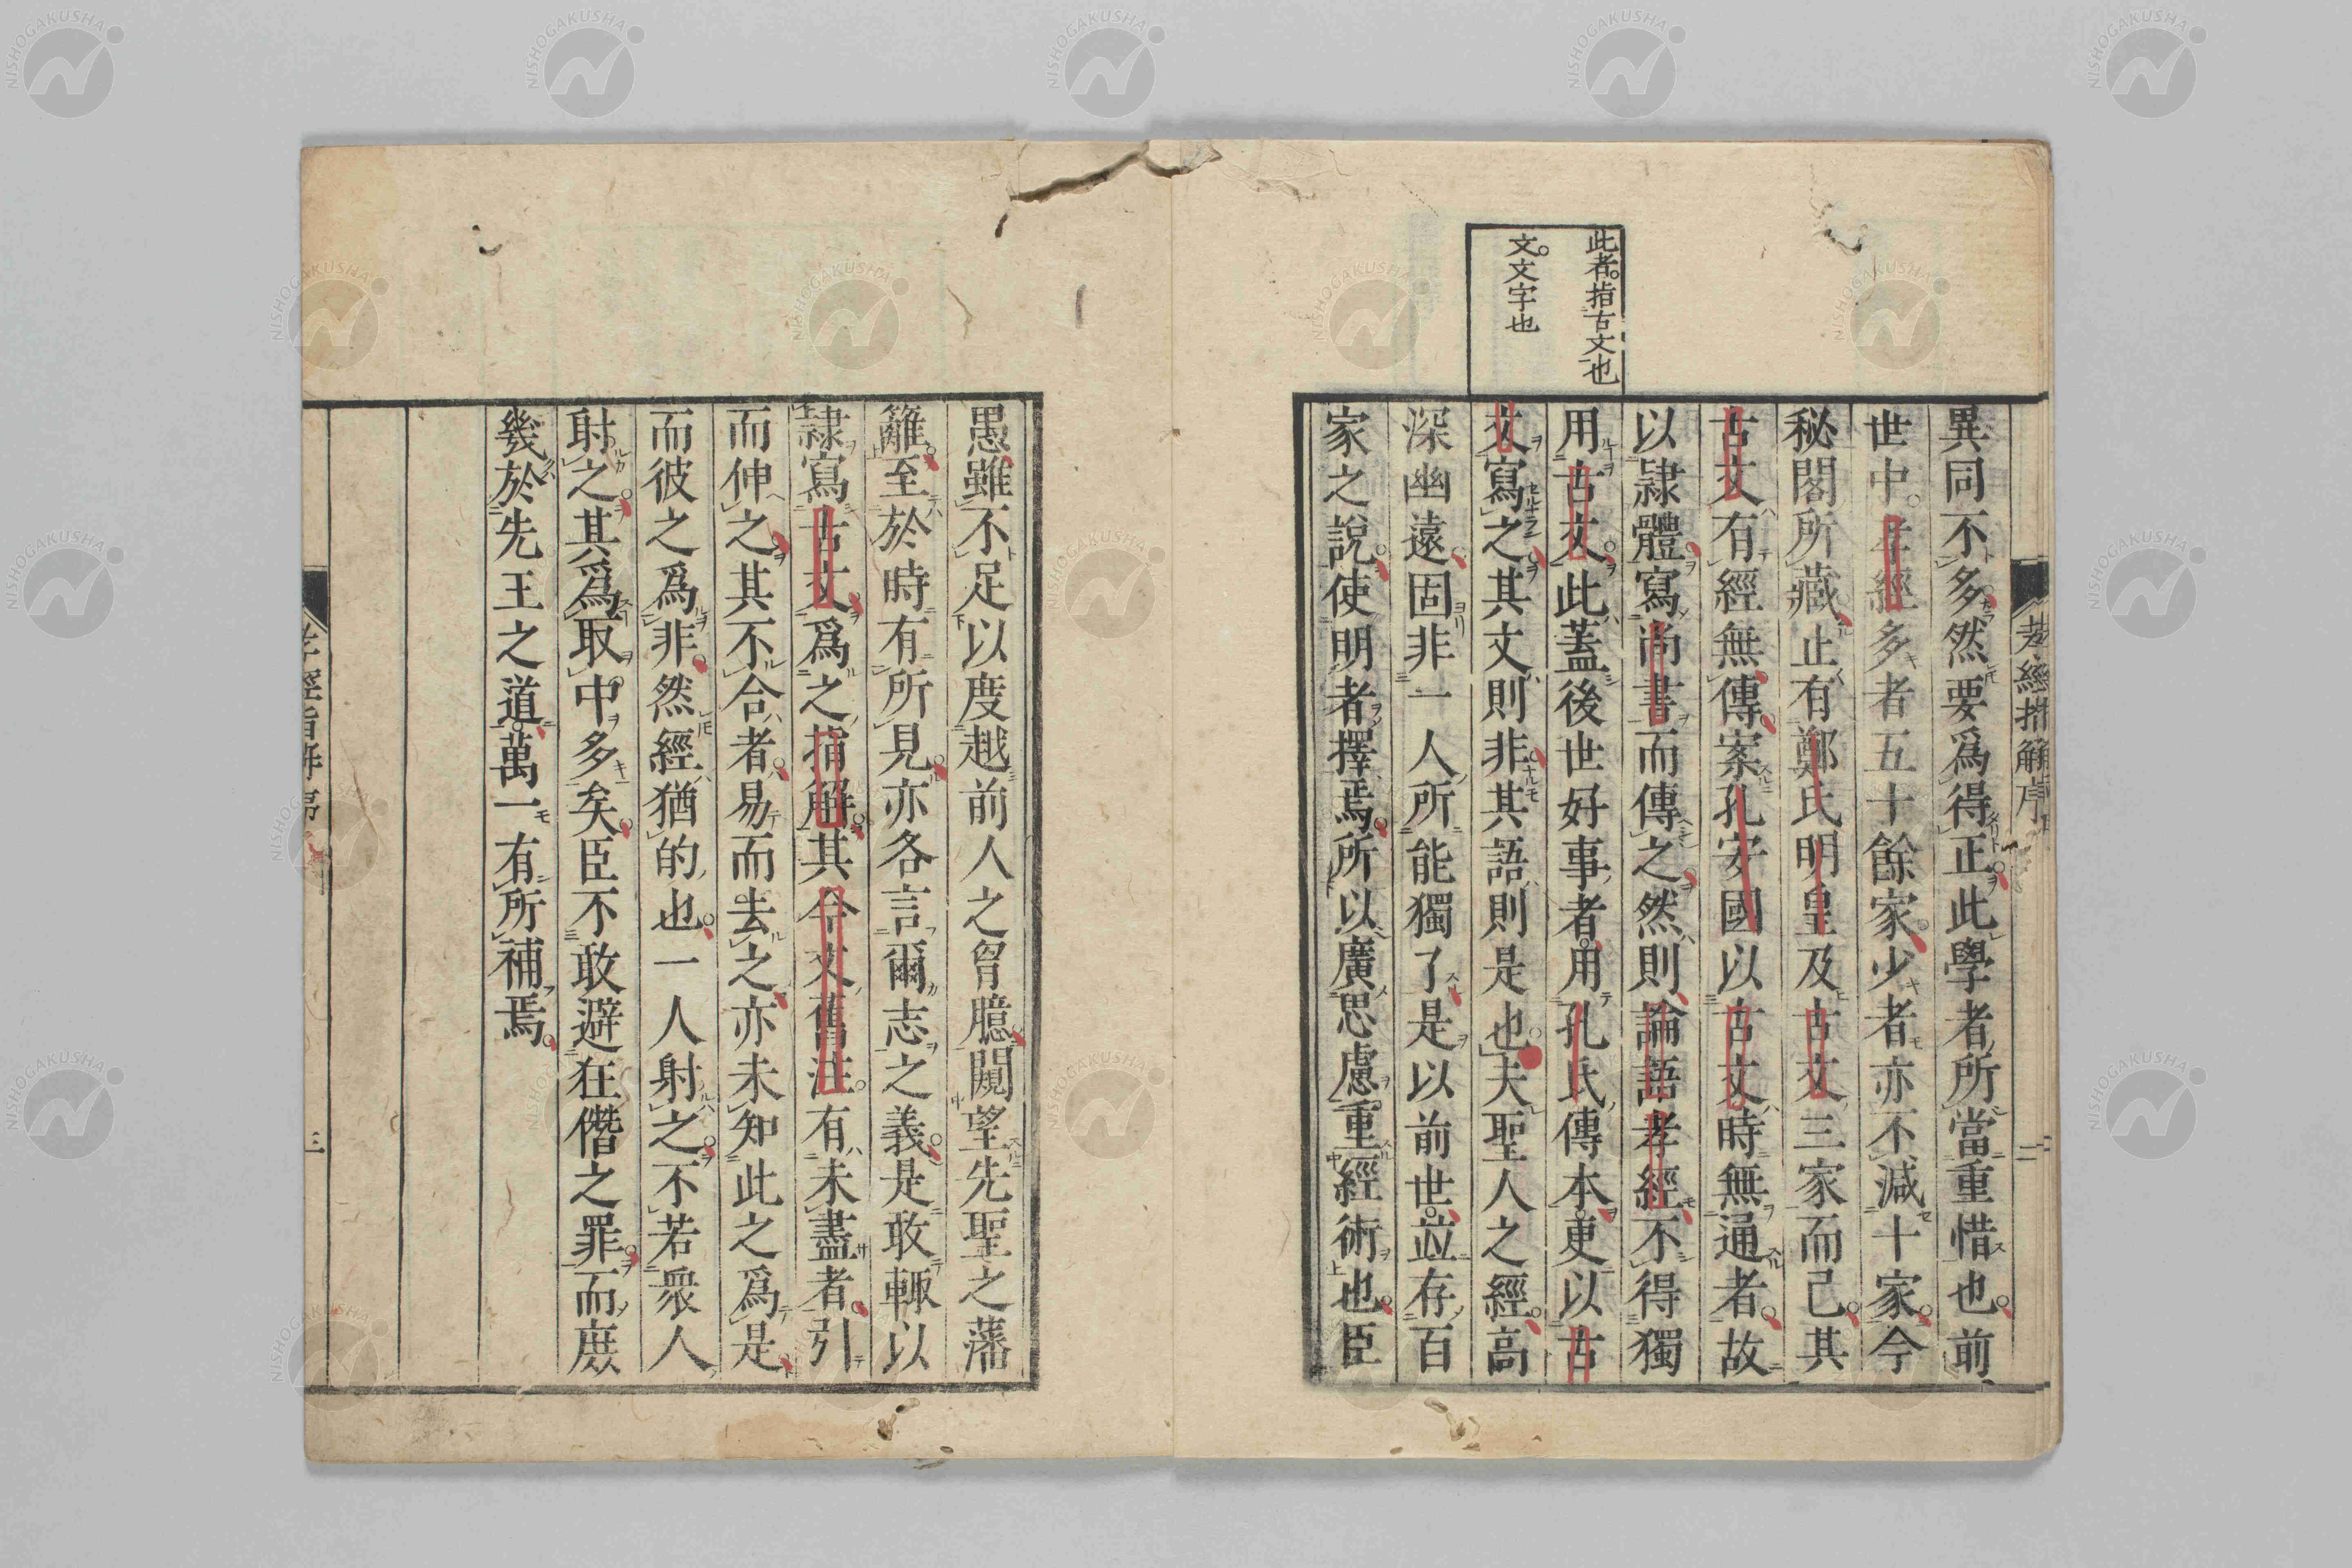 此者。指古文也
文。文字也
異同不多然要爲得正此學者所當重惜也前
世中孝經多者五十餘家少者亦不減十家今
秘閣所藏止有鄭氏明皇及古文三家而己其
古文有經無傳案孔安國以古文時無通者故
以隷體寫尚書而傳之然則論語孝經不得獨
用古文此蓋後世好事者用孔氏傳本更以古
文寫之其文則非其語則是也夫聖人之經高
深幽遠固非一人所能獨了是以前世並存百
家之說使明者擇焉所以廣思慮重經術也臣
愚雖不足以度越前人之胷臆闚望先聖之藩
籬至於時有所見亦各言爾志之義是敢輒以
隷寫古文爲之指解其今文舊注有未盡者引
而伸之其不合者易而去之亦未知此之爲是
而彼之爲非然經猶的也一人射之不若衆人
射之其爲取中多矣臣不敢避狂僭之罪而庶
幾於先王之道萬一有所補焉
三
NISHOGAKUSHA